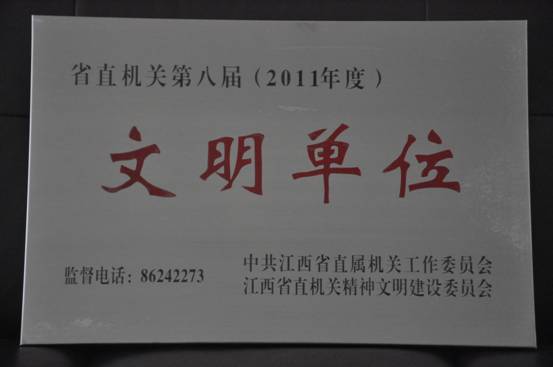 省直机关第八届（2011年度）
文明单位
监督电话：86242273
中共江西省直属机关工作委员会
江西省直机关精神文明建设委员会